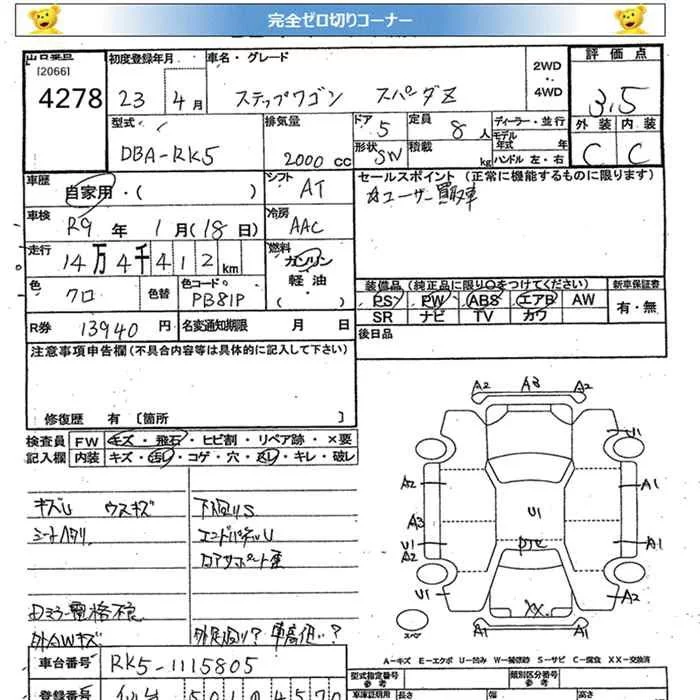 完全ゼロ切りコーナー
出品番号 初度登録年月 車名・グレード 2WD・4WD 評価点
[2066]
4278 23年4月 ステップワゴン スパーダZ 3.5
型式 排気量 ドア 5 定員 8人 ディーラー・並行 外装 内装
モデル年式 年
DBA-RK5 2000cc 形状 SW 積載 kg ハンドル 左・右 C C
車歴 自家用・( ) シフト AT セールスポイント (正常に機能するものに限ります)
車検 R9年1月(18日) 冷房 AAC
走行 14万4千412km 燃料 ガソリン・軽油・( )
色 クロ 色替 色コード PB81P
装備品(純正品に限り○をつけてください) 新車保証書
PS PW ABS エアB AW 有・無
SR ナビ TV カワ
R券 13940円 名変通知期限 月 日 後日品
注意事項申告欄(不具合内容等は具体的に記入して下さい)
修復歴 有 [箇所 ]
検査員 FW キズ・飛石・ヒビ割・リペア跡・×要
記入欄 内装 キズ・汚レ・コゲ・穴・スレ・キレ・破レ
キズU ウスキズ 下廻りS
シートハタリ エンドパネルU
コアサポート歪
外AWキズ 外足廻り? 車高低い?
A2 A3 A2
U1
A2 A1
U1
A3
U1 A1
A2
U1 A2
XX
A1 A1
スペア
A-キズ E-エクボ U-凹み W-補修跡 S-サビ C-腐食 XX-交換済
車台番号 RK5-1115805
型式指定番号 参考 類別区分番号 参考
登録番号 5010 4570 車体証明用 長さ 幅 高さ